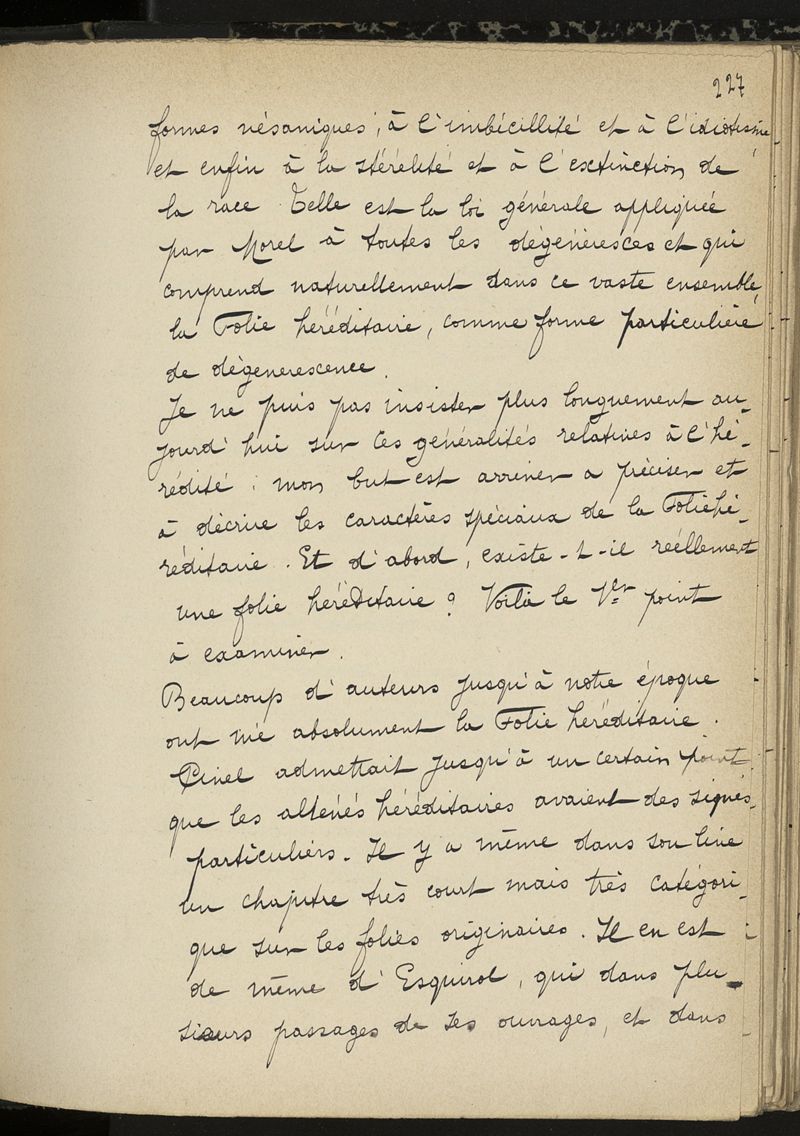 227
formes vésaniques, à l'imbécillité et à l'idiotisme
et enfin à la stérélité et à l'extinction de
la race. Telle est la loi générale appliquée
par Morel à toutes les dégénéresces et qui
comprend naturellement dans ce vaste ensemble,
la Folie héréditaire, comme forme particulière
de dègenerescence.
Je ne puis pas insister plus longuement au-
jourd'hui sur les généralités relatives à l'hé-
rédité : mon but est arriver a préciser et
à décrire les caractères spéciaux de la Folie hé-
réditaire. Et d'abord, existe-t-il réellement
une folie héréditaire ? Voilà le 1er point
à examiner.
Beaucoup d'auteurs jusqu'à notre époque
ont nié absolument la Folie héréditaire.
Pinel admettait jusqu'à un certain point
que les aliénés héréditaires avaient des signes
particuliers. Il y a même dans son livre
un chapitre très court mais très catégori-
que sur les folies originaires. Il en est
de même d'Esquirol, qui dans plu-
sieurs passages de ses ouvrages, et dans